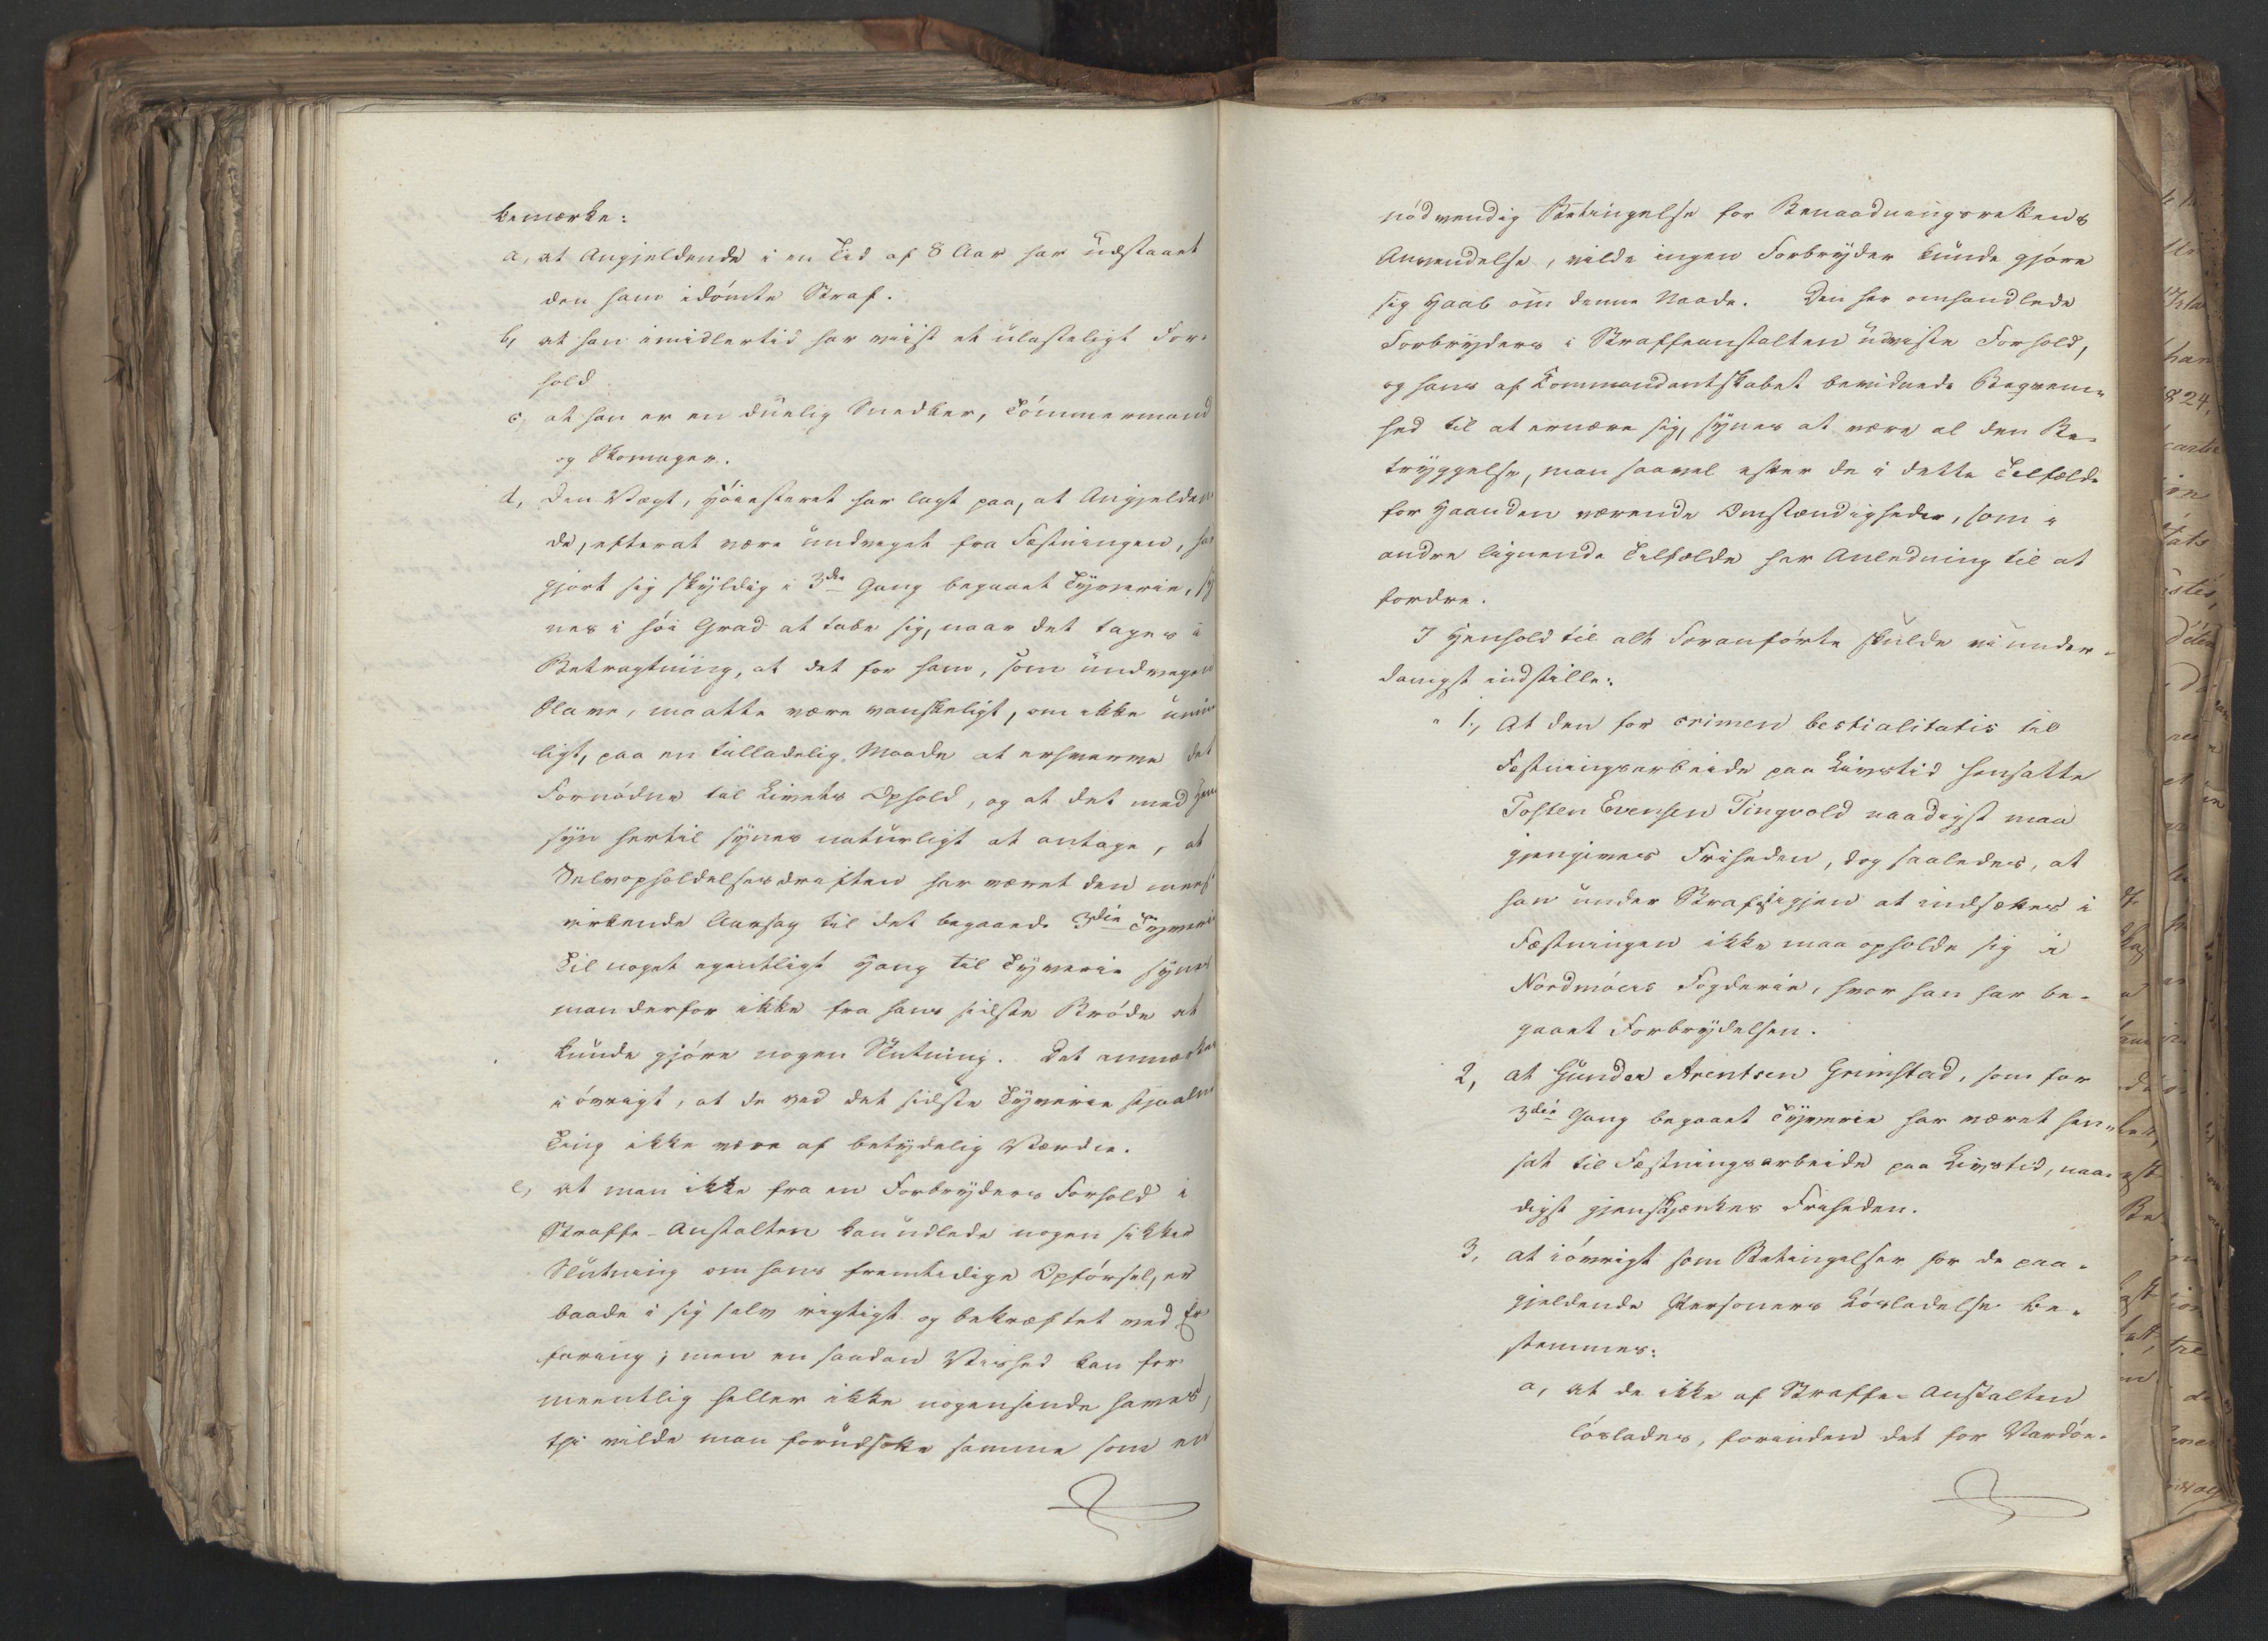 bemærke:
a, at Angjeldende i en Tid af 8 Aar har udstaaet
den ham idømte Straf.
b, at han imidlertid har viist et ulasteligt For-
hold
c, at han er en duelig Snedker, Tömmermand
og Skomager.
d, Den Vægt, Höiesteret har lagt paa, at Angjelden-
de, efterat være undveget fra Fæstningen, har
gjort sig skyldig i 3die Gang begaaet Tyverie, sy
nes i höi Grad at tabe sig, naar det tages i
Betragtning, at det for ham, som undvegen
Slave, maatte være vanskeligt, om ikke umu
ligt, paa en tilladelig Maade at erhverve det
Fornödne til Livets Ophold, og at det med Hen
syn hertil synes naturligt at antage, at
Selvopholdelsesdriften har været den meest
virkende Aarsag til det begaaede 3die Tyverie
Til noget egentligt Hang til Tyverie synes
man derfor ikke fra hans sidste Bröde at
kunde gjöre nogen Slutning. Det anmærkes
i övrigt, at de ved det sidste Tyverie stjaalne
Ting ikke vare af betydelig Værdie.
e, at man ikke fra en Forbryders Forhold i
Straffe-Anstalten kan udlede nogen sikker
Slutning om hans fremtidige Opförsel, er
baade i sig selv rigtigt og bekræftet ved Er-
faring; men en saadan Vished kan for
meentlig heller ikke nogensinde haves,
thi vilde man forudsætte samme som en
nödvendig Betingelse for Benaadningsrettens
Anvendelse, vilde ingen Forbryder kunde gjöre
sig Haab om denne Naade. Den her omhandlede
Forbryders i Straffeanstalten udviste Forhold,
og hans af Commandantskabet bevidnede Beqvem-
hed til at ernære sig, synes at være al den Be-
tryggelse, man saavel efter de i dette Tilfælde
for Haanden værende Omstændigheder, som i
andre lignende Tilfælde har Anledning til at
fordre.
I Henhold til alt Foranförte skulde vi under-
danigst indstille:
1, At den for crimen bestialitatis til
Fæstningsarbeide paa Livstid hensatte
Tosten Evensen Tingvold naadigst maa
gjengives Friheden, dog saaledes, at
han under Straf igjen at indsættes i
Fæstningen ikke maa opholde sig i
Nordmöers Fogderie, hvor han har be-
gaaet Forbrydelsen.
2, at Gunder Arentsen Grimstad, som for
3die Gang begaaet Tyverie har været hen-
sat til Fæstningsarbeide paa Livstid, naa-
digst gjenskjænkes Friheden.
3, at iövrigt som Betingelser for de paa-
gjeldende Personers Lösladelse be-
stemmes:
a, at de ikke af Straffe-Anstalten
löslades, forinden det for Vardöe-